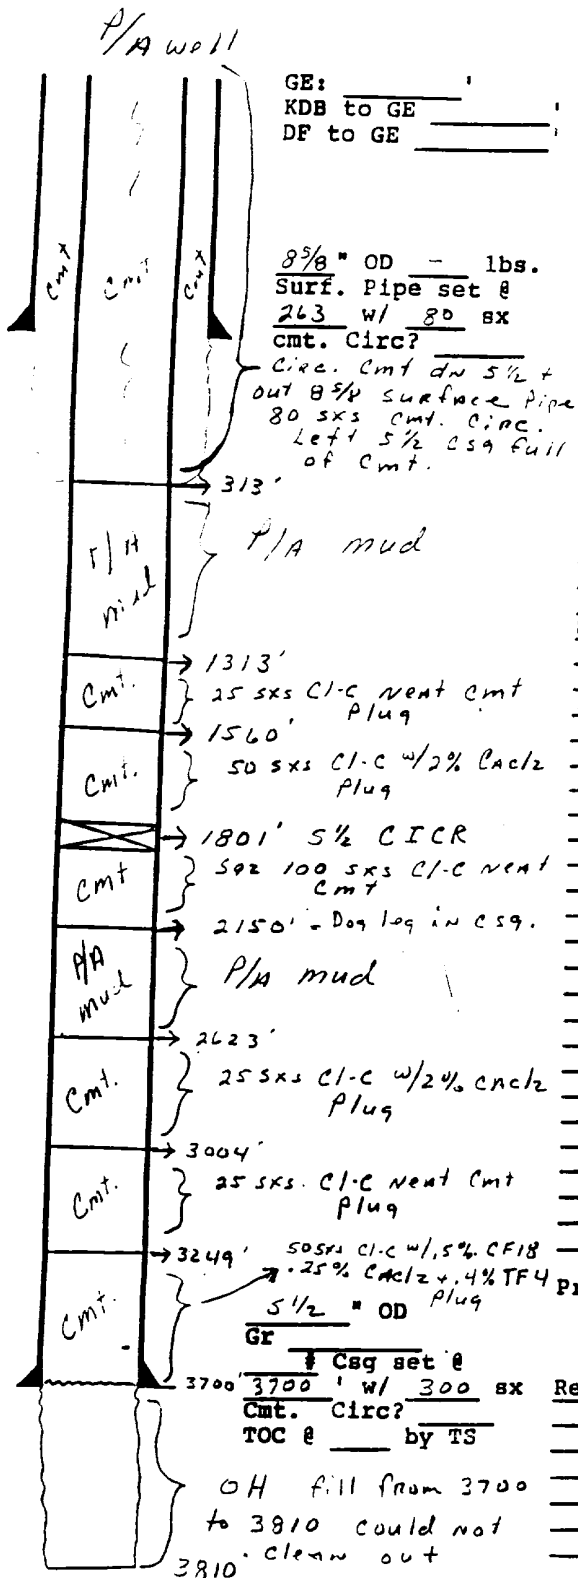 P/A well
GE: '
KDB to GE '
DF to GE '
Cmt
Cmt
Cmt
8 5/8 " OD - lbs.
Surf. Pipe set @
263 w/ 80 sx
cmt. Circ?
Circ. Cmt dn 5 1/2 +
out 8 5/8 surface Pipe
80 sxs Cmt. Circ.
Left 5 1/2 csg full
of Cmt.
313'
P/A
mud
P/A mud
1313'
Cmt.
25 sxs Cl-C Neat Cmt
Plug
1560'
Cmt.
50 sxs Cl-C w/2% CAcl2
Plug
1801' 5 1/2 CICR
Cmt
Sqz 100 sxs Cl-C Neat
Cmt
2150' - Dog leg in csg.
P/A
mud
P/A mud
2623'
Cmt.
25 sxs Cl-C w/2% CAcl2
Plug
3004'
Cmt.
25 sxs. Cl-C Neat Cmt
Plug
3249'
50 sxs Cl-C w/.5% CF18
.25% CAcl2 + .4% TF4
Plug
Pr
Cmt.
5 1/2 " OD
Gr
# Csg set @
3700' 3700 ' w/ 300 sx Re
Cmt. Circ?
TOC @ by TS
OH fill from 3700
to 3810 could not
clean out
3810